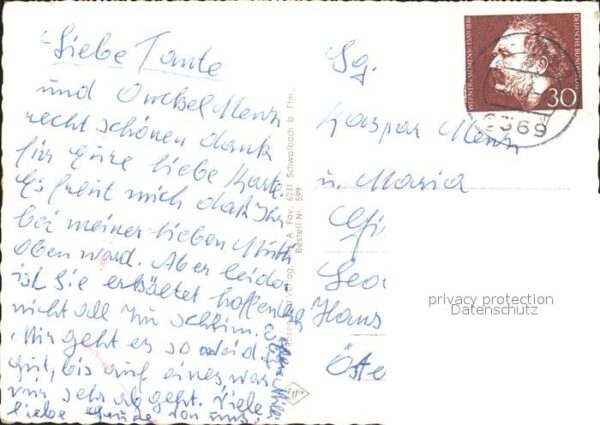 Liebe Tante
und Onckel Menz
recht schönen dank
für Eure liebe Karte.
Es freut mich daß Ihr
bei meiner lieben Mutti
oben ward. Aber leider
ist Sie erkältet hoffentlich
nicht all zu schlim.
Mir geht es so weid g
gut, bis auf eines, was
mir sehr abgeht. Viele
liebe Grüße von uns.
A. Fay, 6231 Schwalbach b. Ffm.
Bestell-Nr. 599
Sg.
Kaspar Menz
u. Maria
Gi
Geo
Hans
Öste
WERNER v. SIEMENS · 1816
DEUTSCHE BUNDESPOST
30
privacy protection
Datenschutz